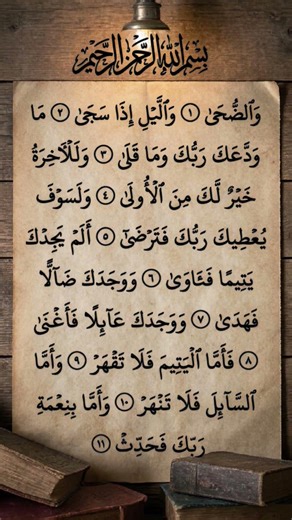 بِسْمِ اللهِ الرَّحْمٰنِ الرَّحِيْمِ
وَٱلضُّحَىٰ ۝١ وَٱلَّيْلِ إِذَا سَجَىٰ ۝٢ مَا
وَدَّعَكَ رَبُّكَ وَمَا قَلَىٰ ۝٣ وَلَلْآخِرَةُ
خَيْرٌ لَّكَ مِنَ ٱلْأُولَىٰ ۝٤ وَلَسَوْفَ
يُعْطِيكَ رَبُّكَ فَتَرْضَىٰٓ ۝٥ أَلَمْ يَجِدْكَ
يَتِيمًا فَـَٔاوَىٰ ۝٦ وَوَجَدَكَ ضَآلًّا
فَهَدَىٰ ۝٧ وَوَجَدَكَ عَآئِلًا فَأَغْنَىٰ
۝٨ فَأَمَّا ٱلْيَتِيمَ فَلَا تَقْهَرْ ۝٩ وَأَمَّا
ٱلسَّآئِلَ فَلَا تَنْهَرْ ۝١٠ وَأَمَّا بِنِعْمَةِ
رَبِّكَ فَحَدِّثْ ۝١١